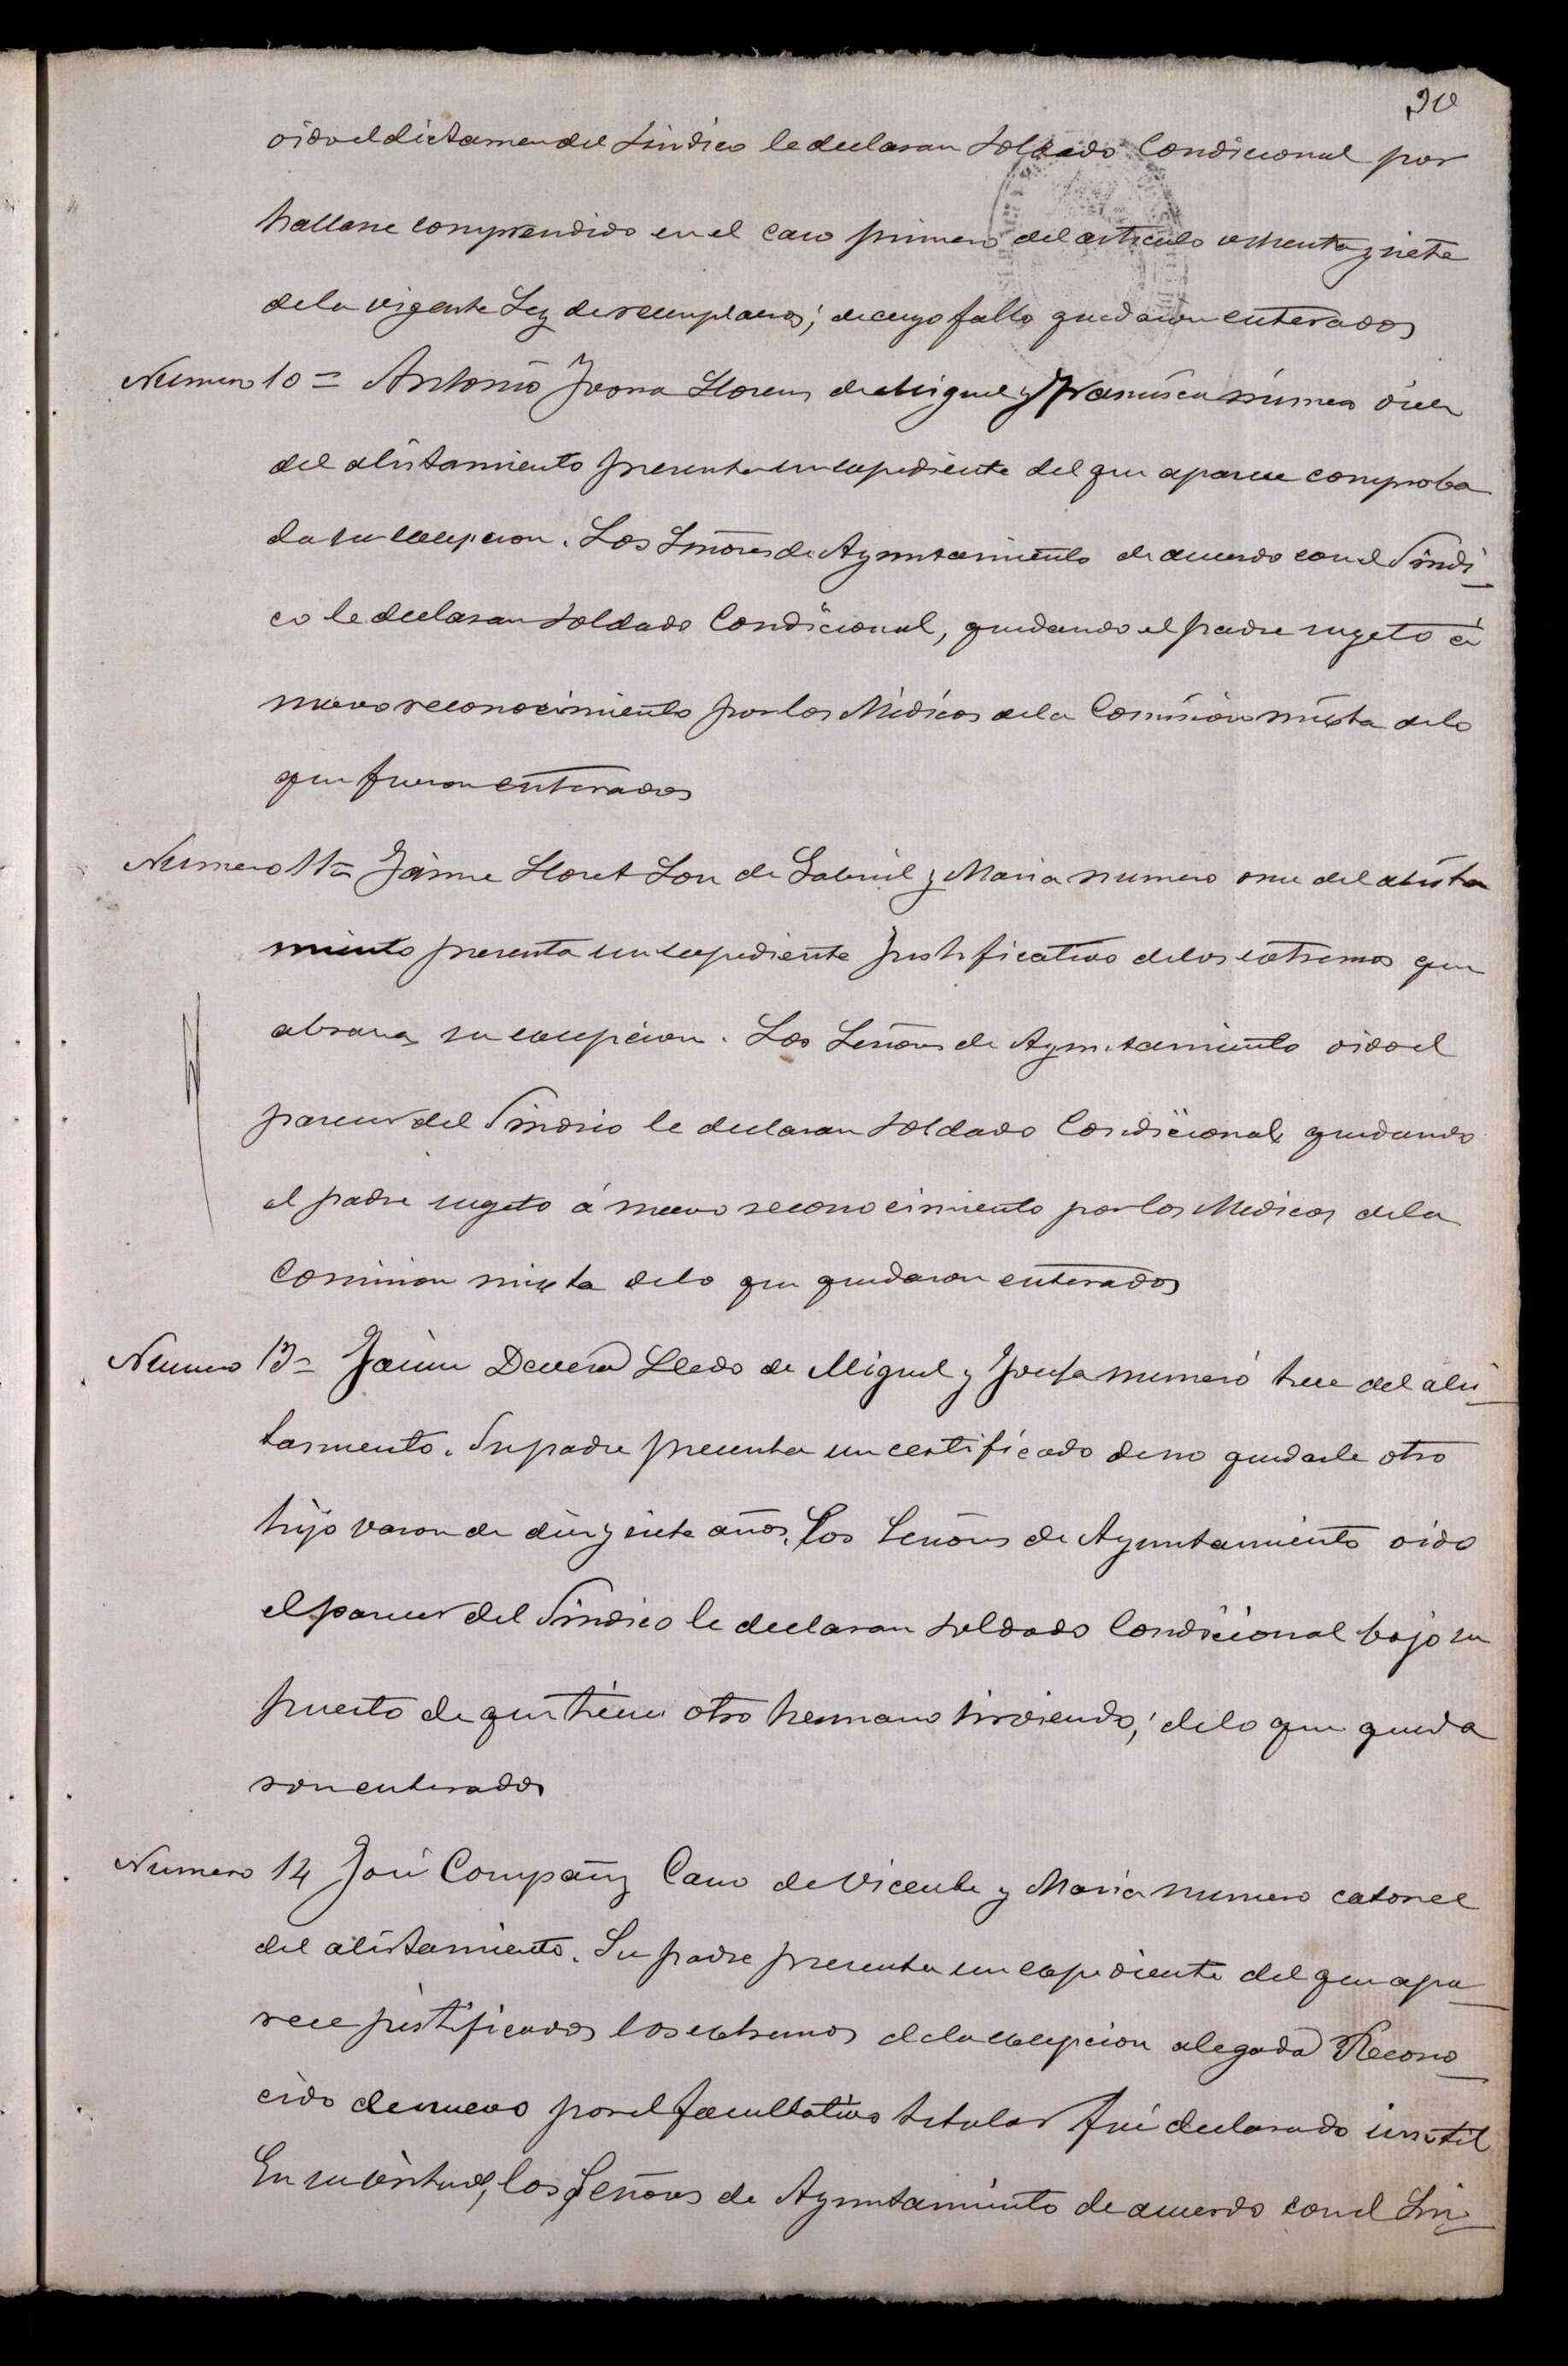 20
oido el dictamen del Sindico le declaran Soldado Condicional por
hallarse comprendido en el caso primero del articulo ochenta y siete
de la vigente Ley de reemplazos; de cuyo fallo quedaron enterados
Numero 10 = Antonio Llorens de Miguel y Francisca número diez
del alistamiento presenta un expediente del que aparece comproba
da su excepcion. Los Señores de Ayuntamiento de acuerdo con el Sindi
co le declaran Soldado Condicional, quedando el padre sugeto á
nuevo reconocimiento por los Médicos de la Comision mixta de lo
que fueron enterados
Numero 11 = Jaime Lloret de Gabriel y Maria numero once del alista
miento presenta un expediente justificativo de los extremos que
abraza su excepcion. Los Señores de Ayuntamiento oido el
parecer del Sindico le declaran Soldado Condicional, quedando
el padre sugeto á nuevo reconocimiento por los Medicos de la
Comision mixta de lo que quedaron enterados
Numero 13 = Jaime Devesa Lledo de Miguel y Josefa numero trece del alis
tamiento. Su padre presenta un certificado de no quedarle otro
hijo varon de diez y siete años. Los Señores de Ayuntamiento oido
el parecer del Sindico le declaran Soldado Condicional bajo su
puesto de que tiene otro hermano sirviendo; de lo que queda
ron enterados
Numero 14 José Compañy Cano de Vicente y Maria numero catorce
del alistamiento. Su padre presenta un expediente del que apa
rece justificados los extremos de la excepcion alegada Recono
cido de nuevo por el facultativo titular fué declarado inutil
En su virtud, los Señores de Ayuntamiento de acuerdo con el Sin